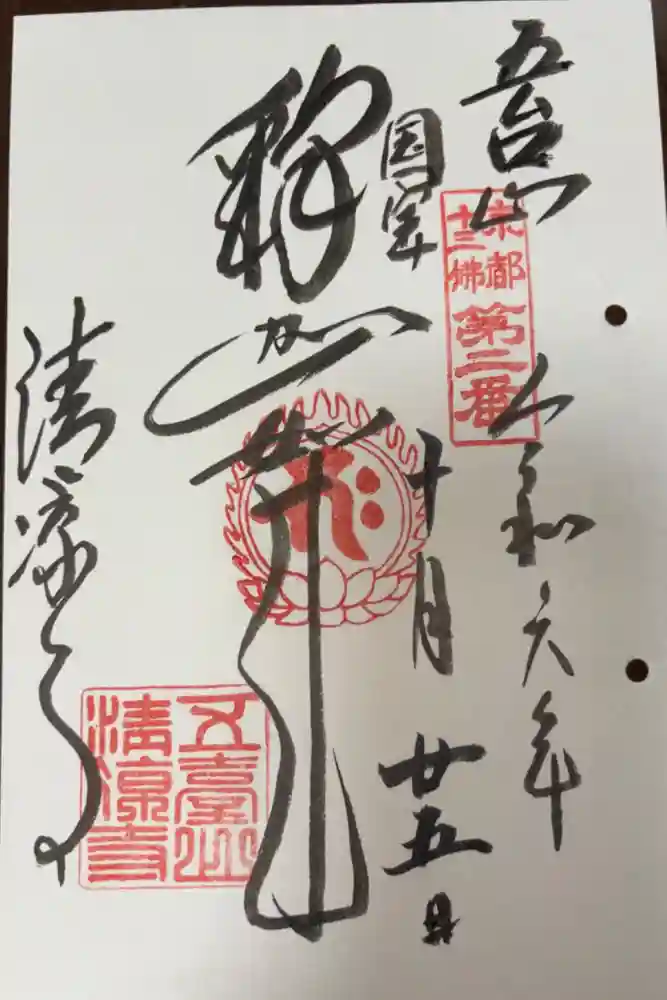 五台山
京都
十三佛
第二番
令和六年
国宝
十月廿五日
釋迦如来
五臺山
清凉寺
清凉寺